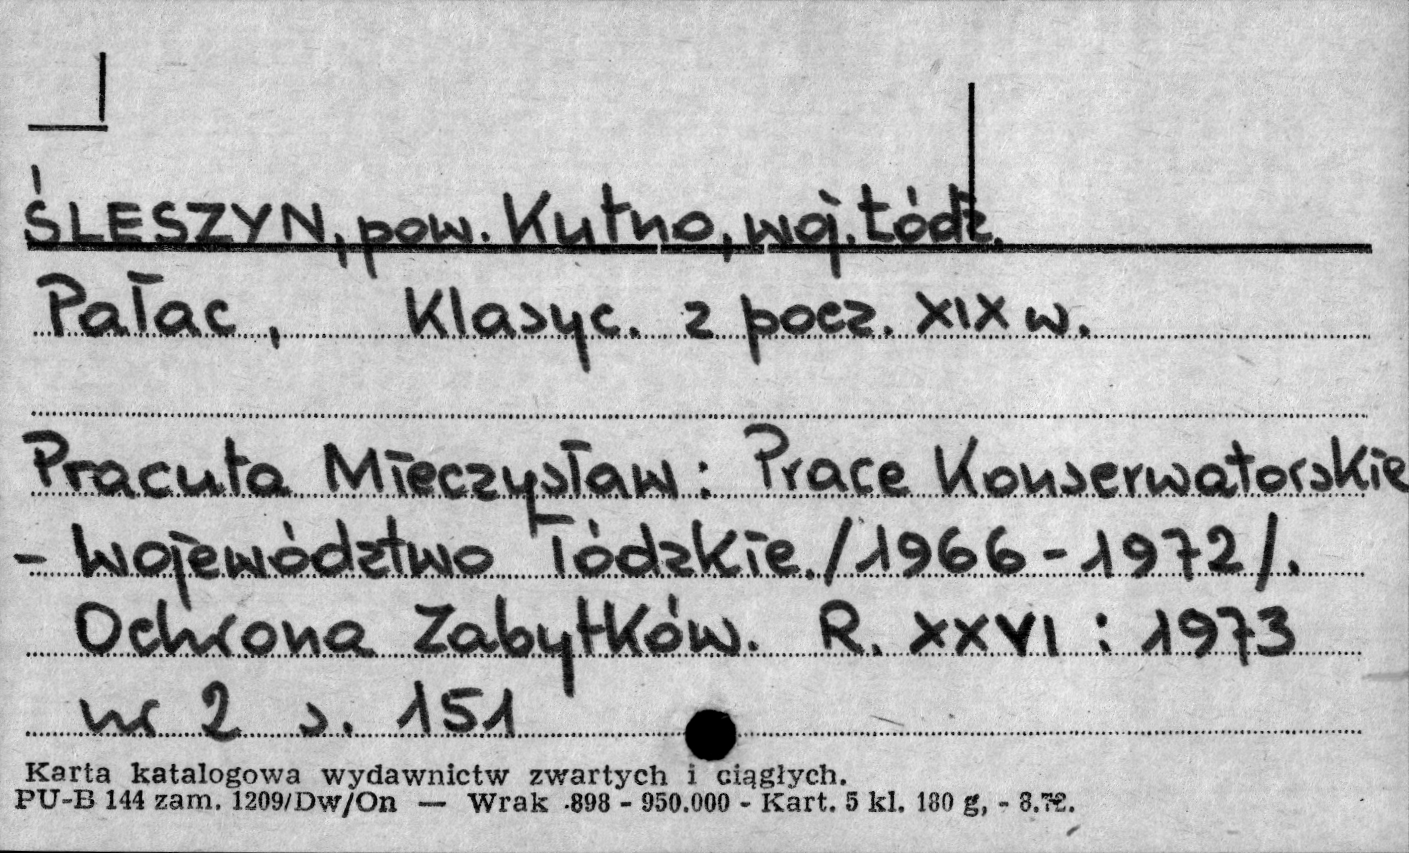 ŚLESZYN, pow. Kutno, woj. Łódź.
Pałac, Klasyc. z pocz. XIX w.
Pracuta Mieczysław: Prace Konserwatorskie
- Województwo łódzkie /1966-1972/.
Ochrona Zabytków. R. XXVI : 1973
nr 2 s. 151
Karta katalogowa wydawnictw zwartych i ciągłych.
PU-B 144 zam. 1209/Dw/On — Wrak .898 - 950.000 - Kart. 5 kl. 180 g, -